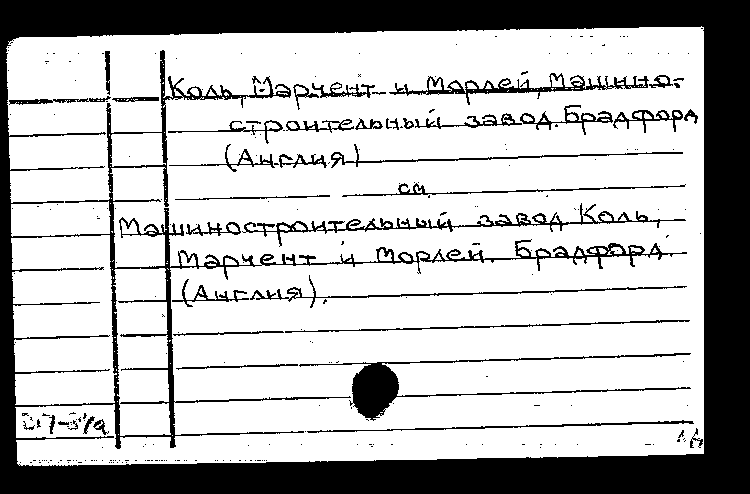 Коль, Марчент и Морлей, Машино-
строительный завод. Брадфорд
(Англия)
см.
Машиностроительный завод Коль,
Марчент и Морлей. Брадфорд.
(Англия).